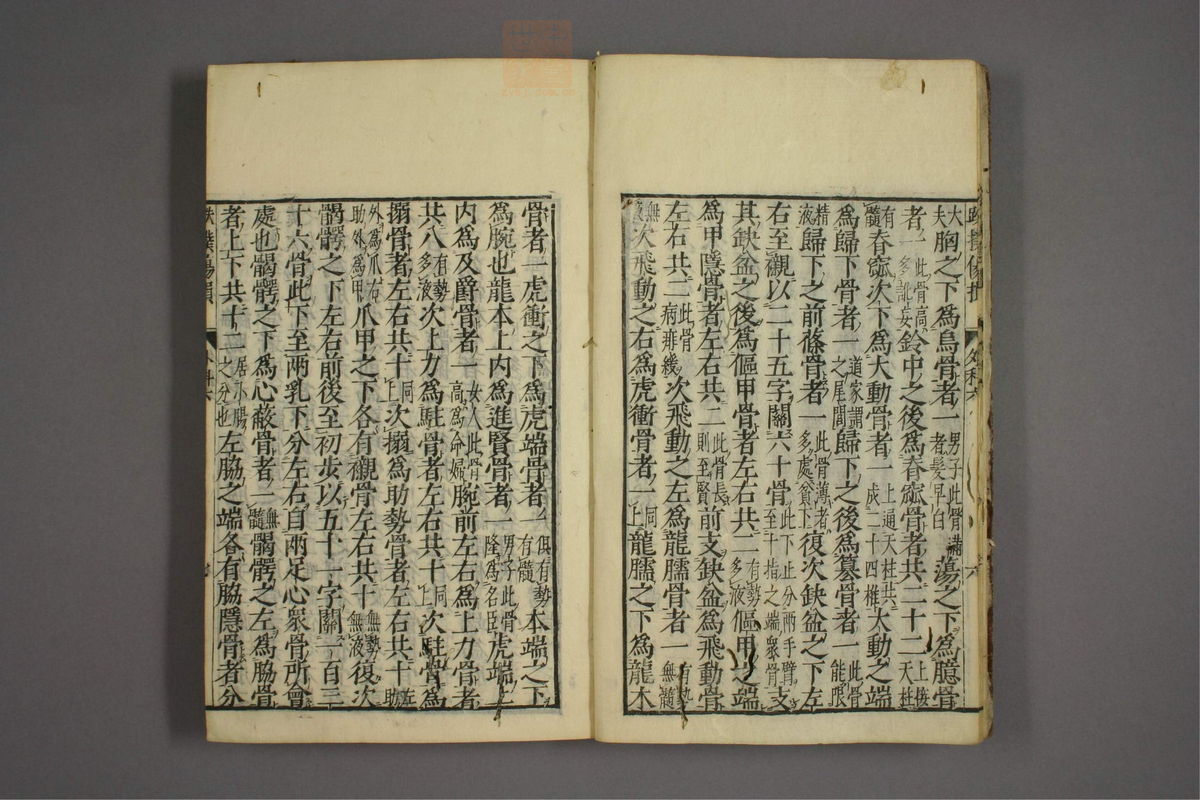 大夫胸之下為烏骨者一男子此骨滿者髮早白蕩之下為臆骨
者一此骨高多訛妄鈴中之後為脊窳骨者共二十二上接天柱
有髓脊窳次下為大動骨者一上通天柱共成二十四椎大動之端
為歸下骨者一道家謂之尾閭歸下之後為篡骨者一此骨能限
精液歸下之前蓧骨者一此骨薄者多處貧下復次缺盆之下左
右至襯以二十五字關六十骨此下止分兩手臂至十指之端眾骨支
其缺盆之後為傴甲骨者左右共二有勢多液傴甲之端
為甲隱骨者左右共二此骨長則至賢前支缺盆為飛動骨
左右共二此骨病痱緩次飛動之左為龍臑骨者一有勢無髓
無液次飛動之右為虎衝骨者一同上龍臑之下為龍本
骨者一虎衝之下為虎端骨者一俱有勢有髓本端之下
為腕也龍本上內為進賢骨者一男子此骨隆為名臣虎端上
內為及爵骨者一女人此骨高為命婦腕前左右為上力骨者
共八有勢多液次上力為駐骨者左右共十同上次駐骨為
搦骨者左右共十同上次搦為助勢骨者左右共十左助
外為爪右助外為甲爪甲之下各有襯骨左右共十無勢無液復次
髑髏之下左右前後至初步以五十一字關一百三
十六骨此下至兩乳下分左右自兩足心眾骨所會
處也髑髏之下為心蔽骨者一無髓髑髏之左為脇骨
者上下共十二居小腸之分也左脇之端各有脇隱骨者分